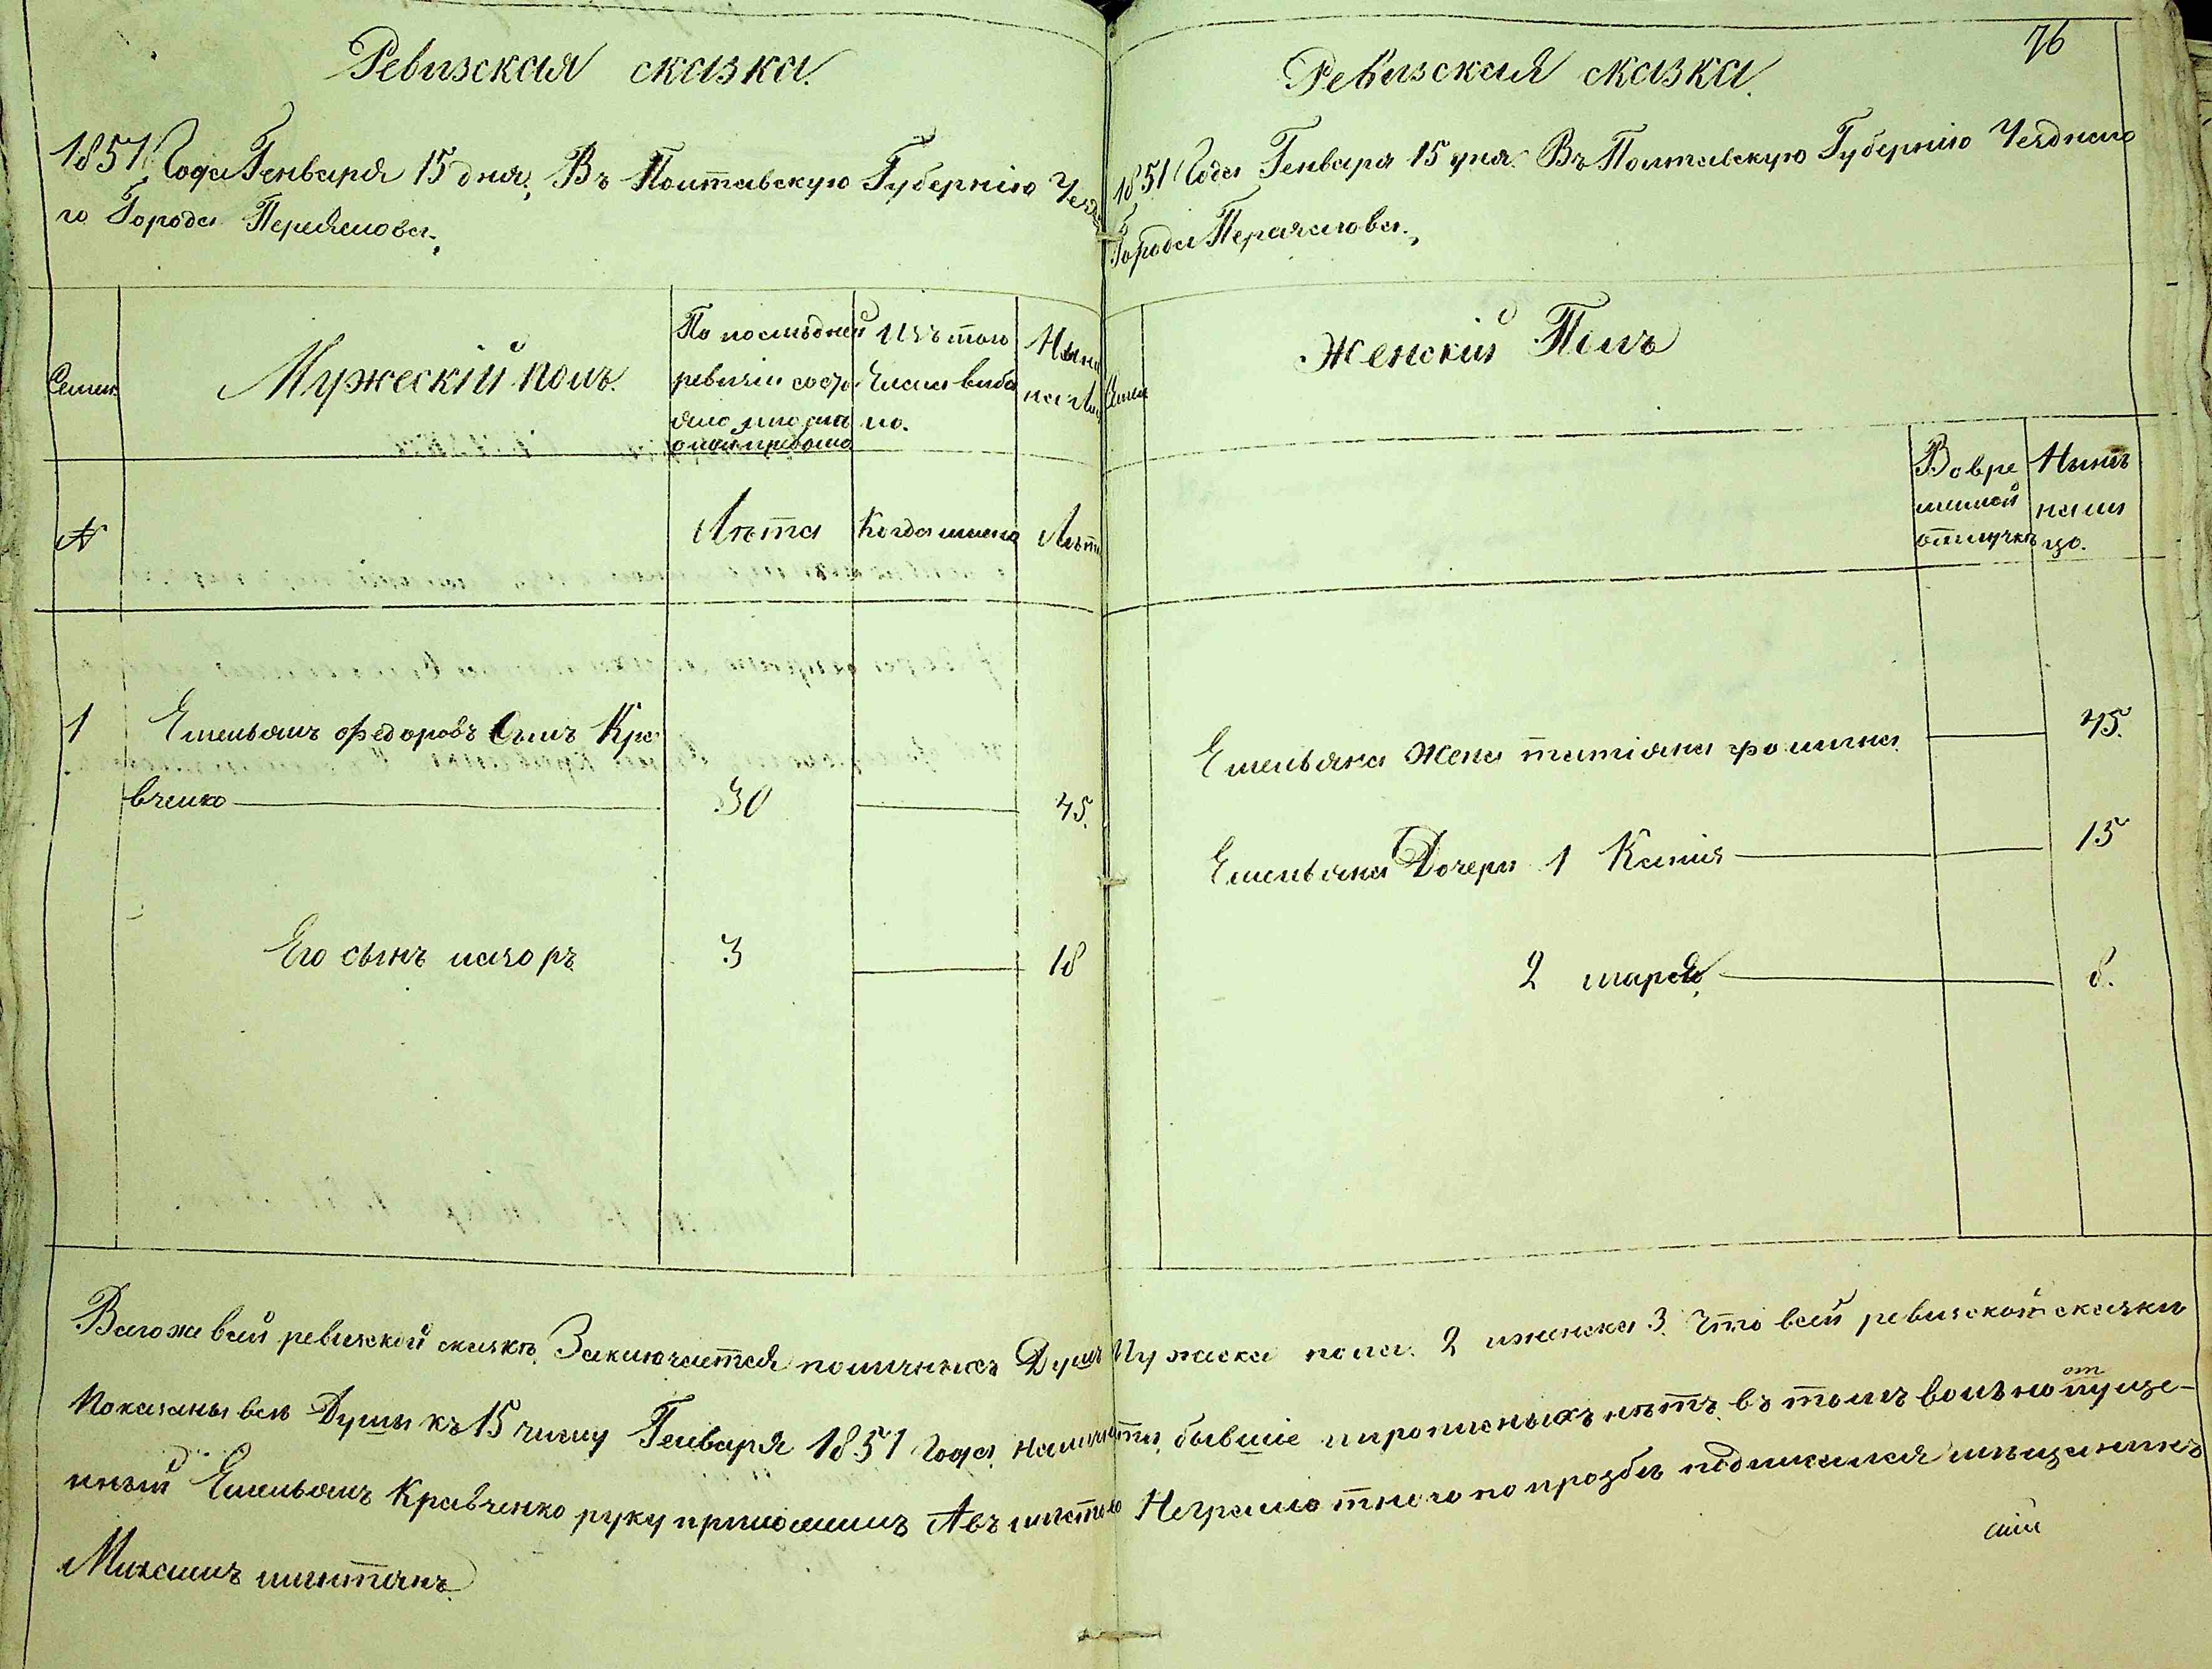 76
Ревизская сказка.
1851 Года Генваря 15 дня, Въ Полтавскую Губернію Уезд
го Города Переяслова.,
Семьи
Мужескій полъ.
По последней
ревизіи состо
яло
Изъ того
Числа выбы
ло.
Нын
на ли
N
Лѣта
Когда имено
Лѣт
1 Емельянъ Федоровъ Сынъ Кра
вченко 30 45.
Его сынъ назоръ 3 18
Ревизская сказка.
1851 Года Генваря 15 дня Въ Полтавскую Губернію Уезднаго
Города Переяслова.,
Женскій Полъ
Во вре
минной
отлучкѣ
Нынѣ
на ли
цо.
Емельяна Жена татіяна фомина 45.
Емельяна Дочери 1 Ксенія 15
2 марея 8.
ревизской сказкѣ Заключается Душъ Мужеска пола 2 иженска 3. Что всей ревизской сказки
Показаны все Душы къ 15 числу Генваря 1851 Года бывшіе ипрописныхъ нѣтъ. въ томъ вольно отпуще-
нный Емельянъ Кравченко руку приложилъ Авъ място Неграмотного по прозбѣ подписался мѣщанинъ
Михаилъ